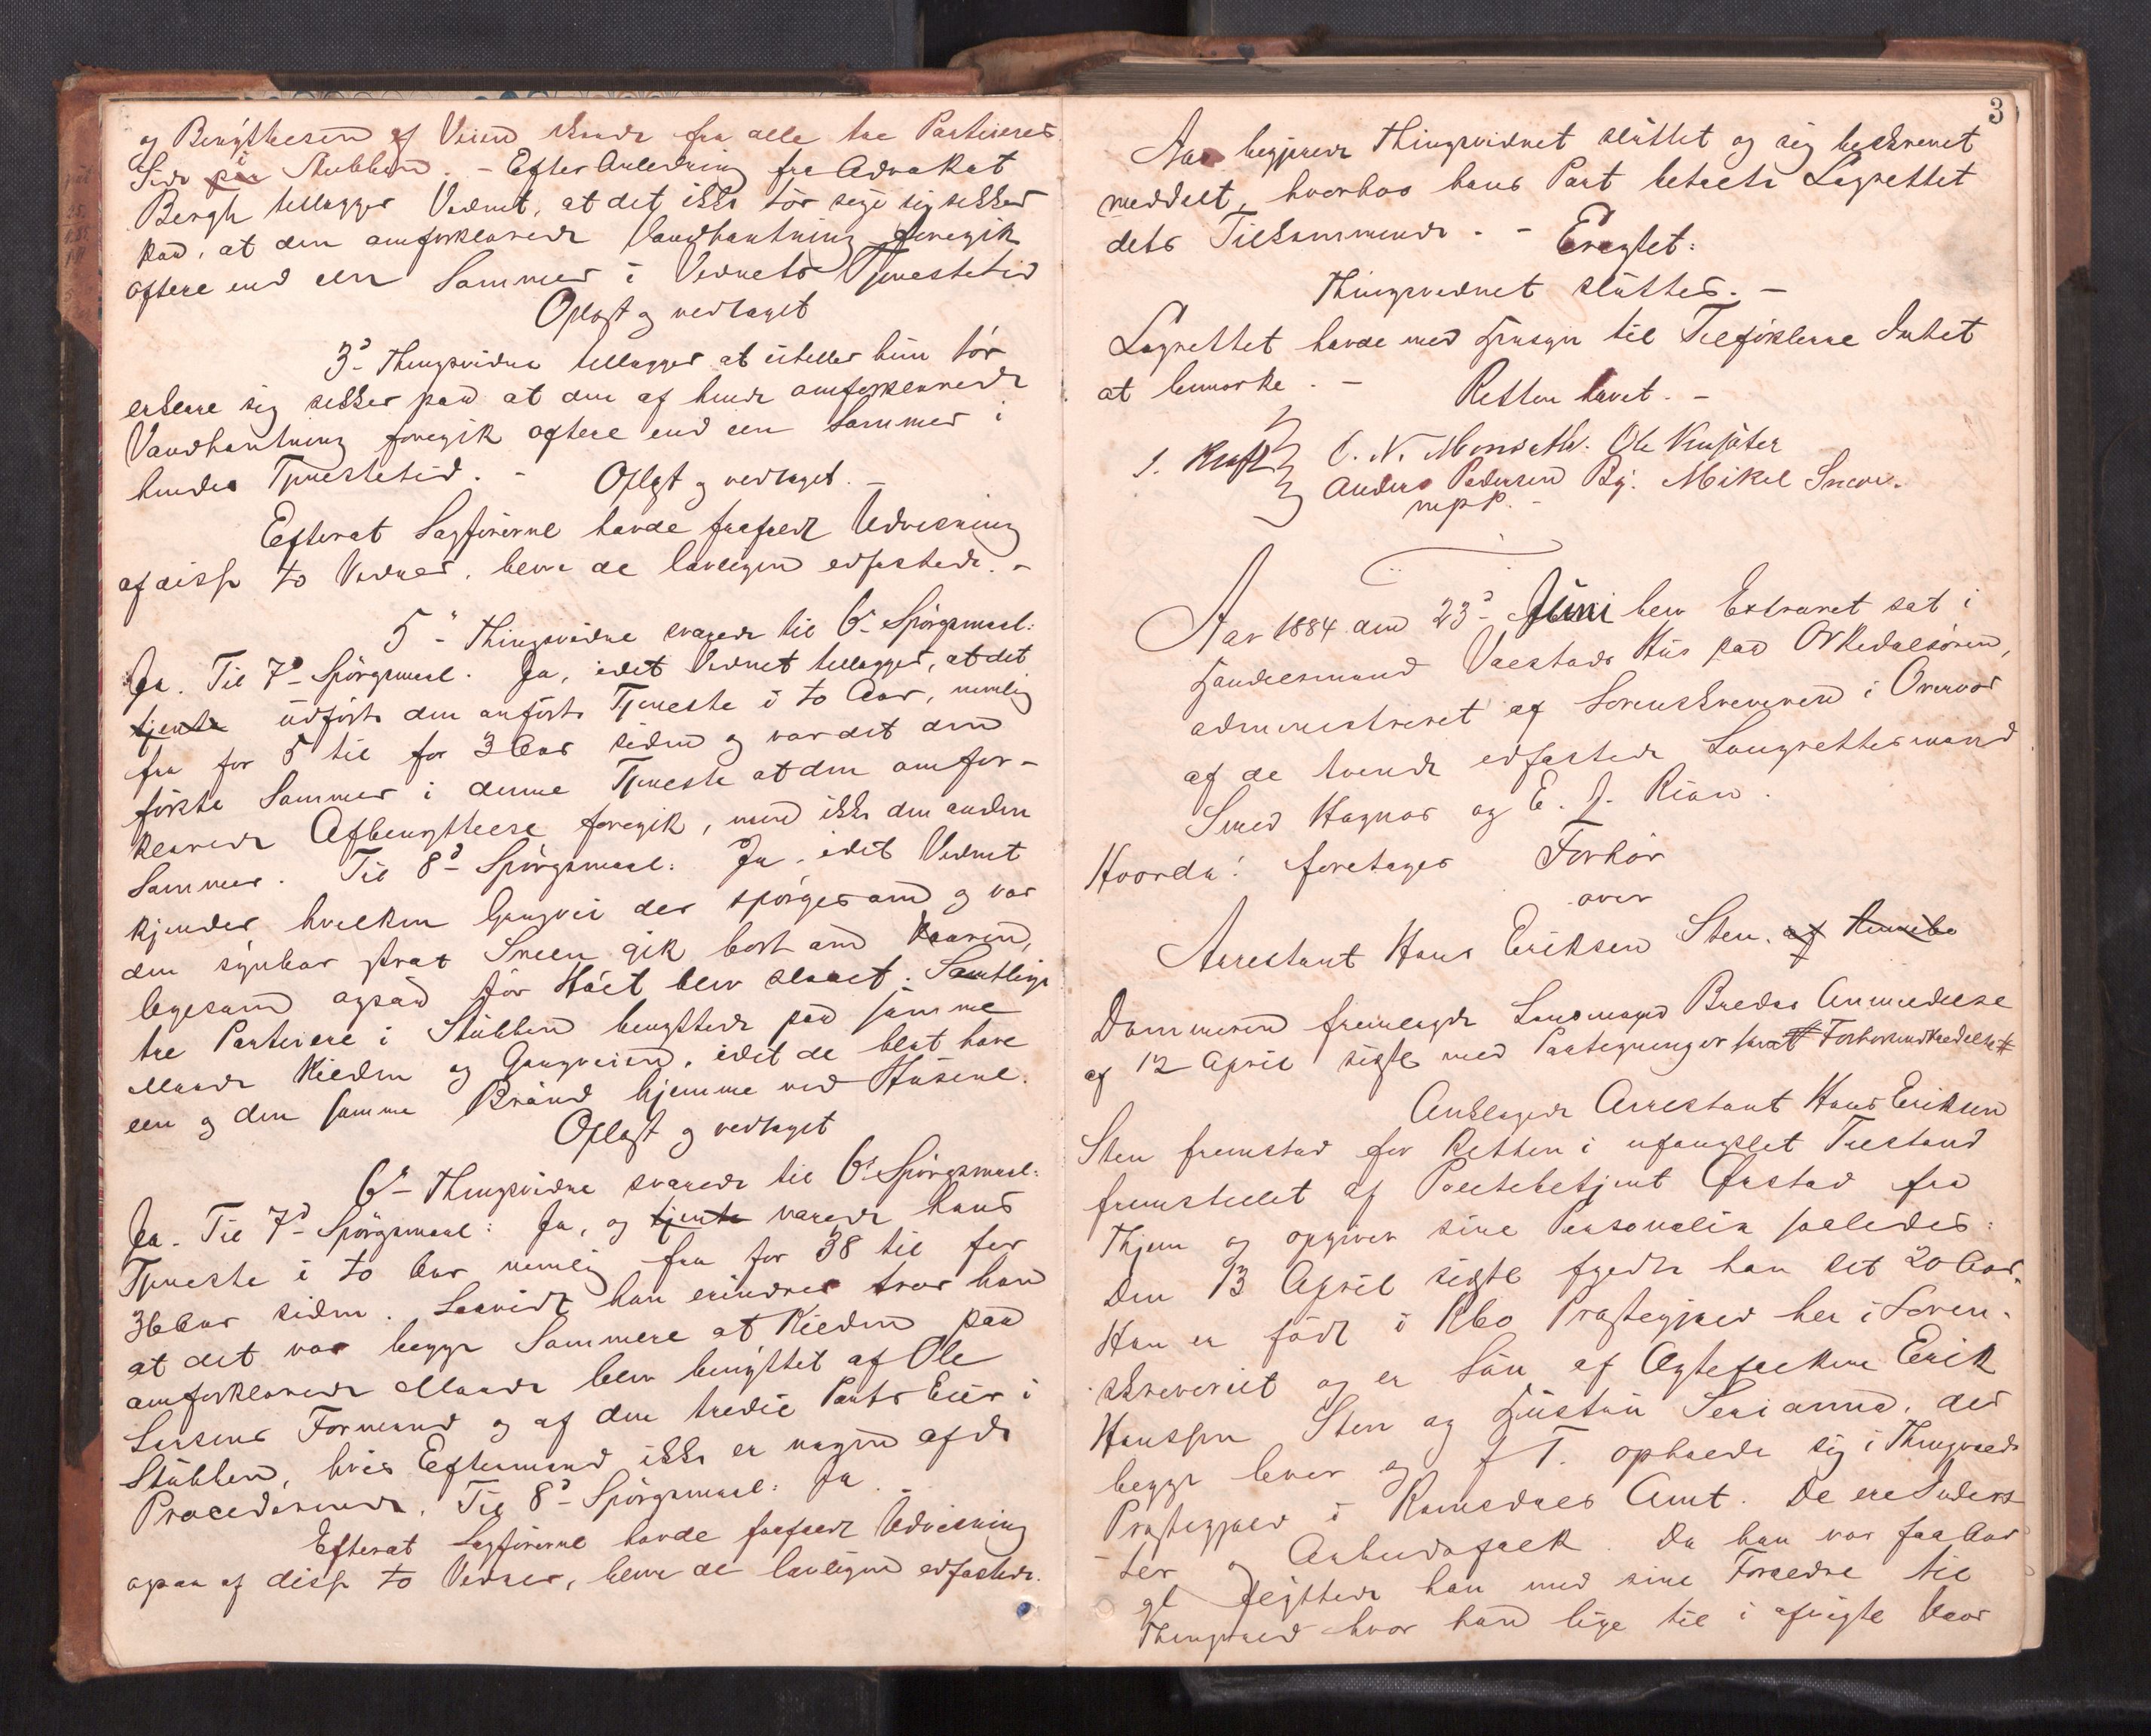 og Benyttelsen af Veien skude fra alle tre Partieres
Side i Stubben. - Efter Anledning fra Advokat
Bergh tillægger Vidnet, at det ikke tør sige sig sikker
paa, at den omforklarede Vandhentning foregik
oftere end een Sommer i Vidnets Tjenestetid
Oplæst og vedtaget
3d Thingsvidne tillægger at ei heller hun tør
erklære sig sikker paa at den af hende omforklarede
Vandhentning foregik oftere end een Sommer i
hendes Tjenestetid. - Oplæst og vedtaget. -
Efterat Sagførerne havde frafaldt Udvisning
af disse to Vidner, bleve de lovligen edfæstede. -
5te Thingsvidne svarede til 6te Spørgsmaal:
Ja. Til 7de Spørgsmaal. Ja, idet Vidnet tillægger, at det
tjente udførte den anførte Tjeneste i to Aar, nemlig
fra for 5 til for 3 Aar siden og var det den
første Sommer i denne Tjeneste at den omfor-
klarede Afbenyttelse foregik, men ikke den anden
Sommer. Til 8de Spørgsmaal: Ja, idet Vidnet
kjender hvilken Gangvei der spørges om og var
den synbar strax Sneen gik bort om Vaaren,
ligesom ogsaa før Høet blev slaaet. Samtlige
tre Partiere i Stubben benyttede paa samme
Maade Kilden og Gangveien, idet de blot have
een og den samme Brønd hjemme ved Husene.
Oplæst og vedtaget
6te Thingsvidne svarede til 6te Spørgsmaal:
Ja. Til 7de Spørgsmaal: Ja, og tjente varede hans
Tjeneste i to Aar nemlig fra for 38 til for
36 Aar siden. Saavidt han erindrer tror han
at det var begge Sommere at Kilden paa
omforklarede Maade blev benyttet af Ole
Larsens Formand og af den tredie Parts Eier i
Stubben, hvis Eftermand ikke er nogen af de
Procederende. Til 8de Spørgsmaal: Ja. -
Efterat Sagførerne havde frafaldt Udvisning
ogsaa af disse to Vidner, bleve de lovligen edfæstede.
3
Aas begjærede Thingsvidnet sluttet og sig beskrevet
meddelt, hvorhos hans Part betalte Lagrettet
dets Tilkommende. - - Eragtet:
Thingsvidnet sluttes. -
Lagrettet havde med Hensyn til Tilførslerne Intet
at bemærke. - Retten hævet. -
J. Kraft O. N. Monseth. Ole
Anders Pedersen By. Mikel
mpP. -
Aar 1884 den 23de Juni blev Extraret sat i
Handelsmand Vaestads Hus paa Orkedalsøren,
administreret af Sorenskriveren i Overvær
af de tvende edfæstede Laugrettesmænd
Hagnos og E. J. Rian.
Hvorda: foretages Forhør
over
Arrestant Hans Eriksen Sten. af
Dommeren fremlagde Lensmand Bredes Anmeldelse
af 12 April sidstl med Paategninger samt Forhørsindkaldelse
Anklagede Arrestant Hans Eriksen
Sten fremstod for Retten i ufængslet Tilstand
fremstillet af Politibetjent Ørstad fra
Thjem og opgiver sine Personalia saaledes:
Den 13 April sidstl fyldte han sit 20 Aar.
Han er født i Rbo Præstegjæld her i Soren-
skriveriet og er Søn af Ægtefolkene Erik
Hanssen Sten og Hustru Serianna, der
begge lever og f T. opholde sig i Thingvolds
Præstegjæld i Romsdals Amt. De ere Inders-
ter og Arbeidsfolk. Da han var faa Aar
gl flyttede han med sine Forældre til
Thingvold hvor han lige til i afvigte Vaar